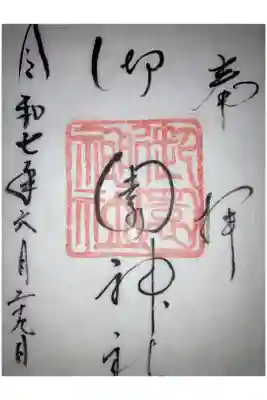 奉拝
御園神社
令和七年六月二十九日